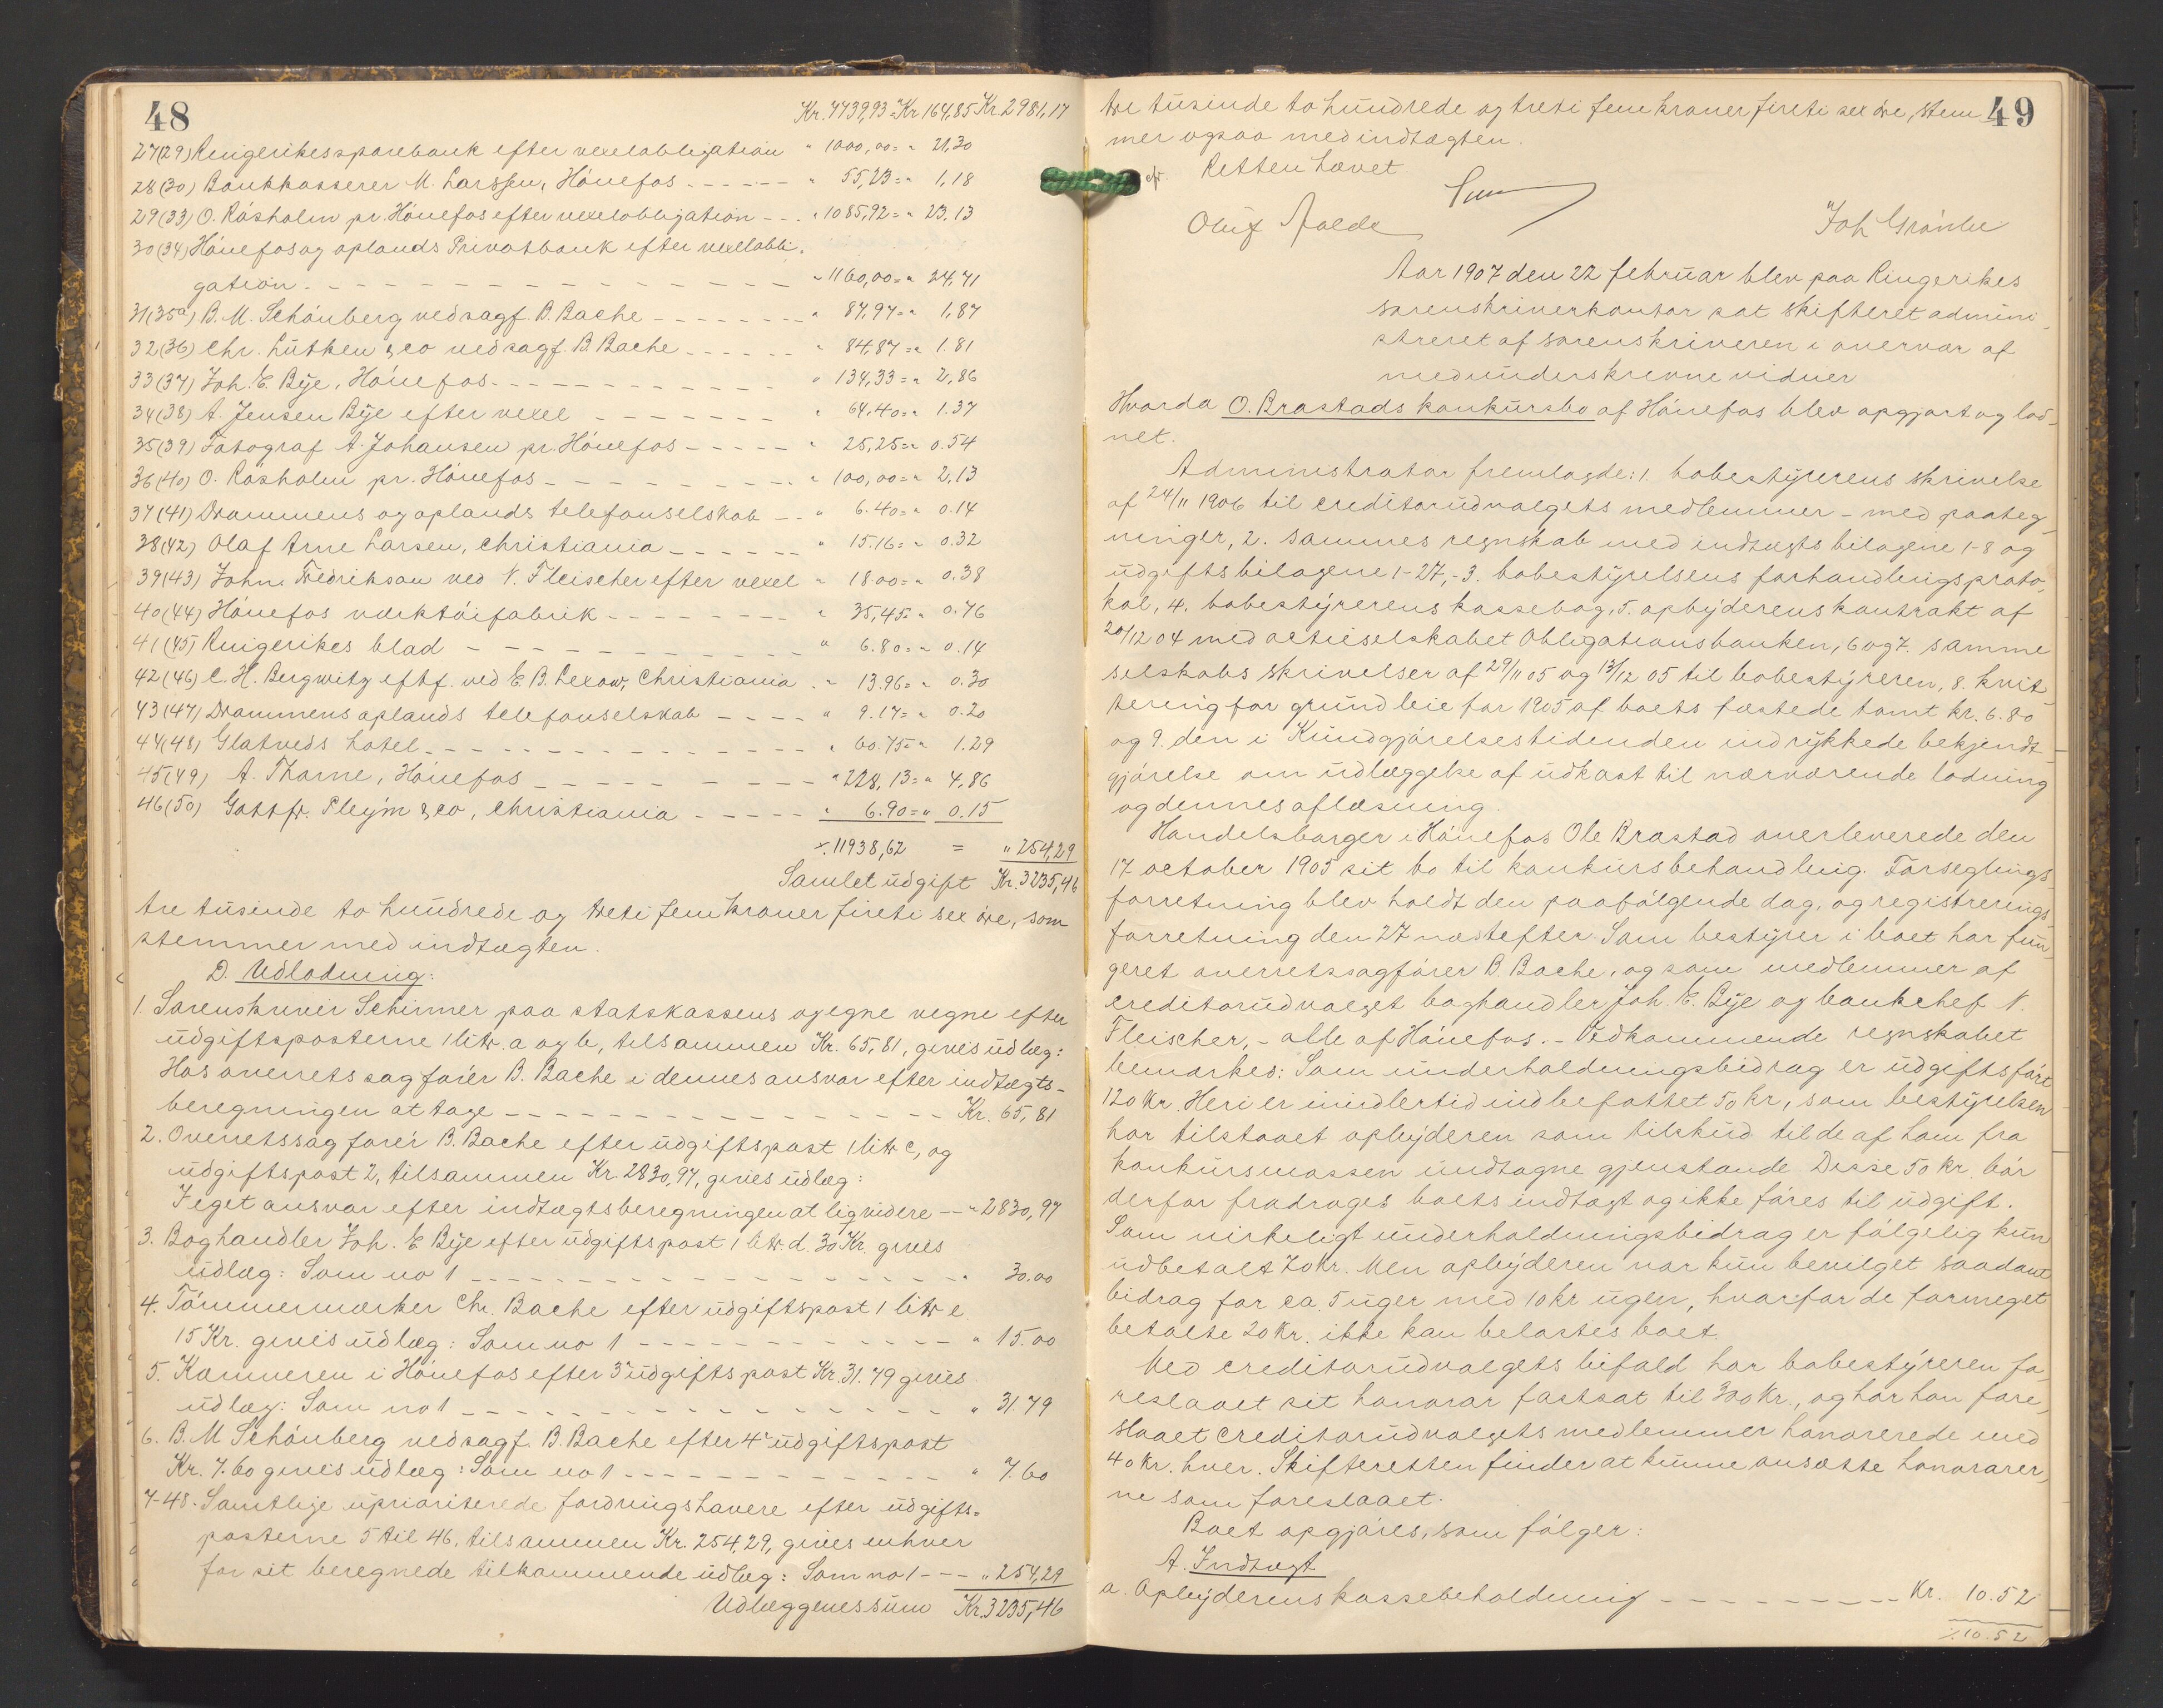 48
Kr. 7739,93 = Kr. 164,85 Kr. 2981,17
27(29) Ringerikes sparebank efter vexelobligation " 1000,00 = " 21,30
28(30) Bankkasserer M. Larssen, Hönefos " 55,23 = " 1,18
29(33) O. Råsholm pr. Hönefos efter vexelobligation " 1085,92 = " 23.13
30(34) Hönefos og oplands Privatbank efter vexelobli-
gation " 1160,00 = " 24,71
31(35a) B. M. Schönberg ved sagf. B. Bache " 87,97 = " 1,87
32(36) Chr. Lütken & co ved sagf. B. Bache " 84,87 = " 1.81
33(37) Joh. E. Bye, Hönefos " 134,33 = " 2,86
34(38) A. Jensen Bye efter vexel " 64,40 = " 1.37
35(39) Fotograf A. Johansen pr. Hönefos " 25,25 = " 0.54
36(40) O. Råsholm pr. Hönefos " 100,00 = " 2,13
37(41) Drammens og oplands telefonselskab " 6.40 = " 0.14
38(42) Olaf Arne Larsen, Christiania " 15.16 = " 0.32
39(43) John Fredrikson ved N. Fleischer efter vexel " 18.00 = " 0.38
40(44) Hönefos værktöifabrik " 35,45 = " 0.76
41(45) Ringerikes blad " 6.80 = " 0.14
42(46) C. H. Bergwitz eftf. ved E. B. Lexow, Christiania " 13.96 = " 0.30
43(47) Drammens oplands telefonselskab " 9.17 = " 0.20
44(48) Glatveds hotel " 60.75 = " 1.29
45(49) A. Thorne, Hönefos " 228,13 = " 4,86
46(50) Gottfr. Pleym & co, Christiania " 6.90 = " 0.15
11938,62 = " 254,29
Samlet udgift Kr. 3235,46
tre tusinde to hundrede og treti fem kroner firti sex öre, som
stemmer med indtægten.
D. Udlodning:
1. Sorenskriver Schirmer paa statskassens og egne vegne efter
udgiftsposterne 1 litr. a og b, tilsammen Kr. 65,81, gives udlæg:
Hos overretssagförer B. Bache i dennes ansvar efter indtægts-
beregningen at tage Kr. 65,81
2. Overretssagförer B. Bache efter udgiftspost 1 litr c, og
udgiftspost 2, tilsammen Kr 2830,97, gives udlæg:
I eget ansvar efter indtægtsberegningen at liqvidere " 2830,97
3. Boghandler Joh. E Bye efter udgiftspost 1 litr d. 30 Kr. gives
udlæg: Som no 1 " 30.00
4. Tömmermærker Chr. Bache efter udgiftspost 1 litr e
15 Kr. gives udlæg: Som no 1 " 15.00
5. Kæmneren i Hönefos efter 3 udgiftspost Kr. 31.79 gives
udlæg: Som no 1 " 31.79
6. B. M Schönberg ved sagf. B. Bache efter 4 udgiftspost
Kr. 7.60 gives udlæg: Som no 1 " 7.60
7-48. Samtlige uprioriterede fordringshavere efter udgifts-
posterne 5 til 46, tilsammen Kr. 254,29, gives enhver
for sit beregnede tilkommende udlæg: Som no 1 " 254,29
Udlæggenes sum Kr. 3235,46
49
tre tusinde to hundrede og treti fem kroner firti sex öre, stem
mer ogsaa med indtægten.
Retten hævet
Oluf
Joh
Aar 1907 den 22 februar blev paa Ringerikes
sorenskriverkontor sat skifteret admini-
streret af sorenskriveren i overvær af
medunderskrevne vidner
Hvorda O. Brastads konkursbo af Hönefos blev opgjort og lod-
net.
Administrator fremlagde: 1. bobestyrerens skrivelse
af 24/11 1906 til creditorudvalgets medlemmer – med paateg-
ninger, 2. sammes regnskab med indtægtsbilagene 1-8 og
udgiftsbilagene 1-27, - 3. bobestyrelsens forhandlingsproto-
kol, 4. bobestyrerens kassebog, 5. opbyderens kontrakt af
20/12 04 med actieselskabet Obligationsbanken, 6 og 7. samme
selskabs skrivelser af 29/11 05 og 13/12 05 til bobestyreren, 8. kvit-
tering for grundleie for 1905 af boets fæstede tomt kr. 6.80
og 9. den i Kundgjörelsestidenden indrykkede bekjendt-
gjörelse om udlæggelse af udkast til nærværende lodning
og dennes aflæsning.
Handelsborger i Hönefos Ole Brastad overleverede den
17 october 1905 sit bo til konkursbehandling. Forseglings-
forretning blev holdt den paafölgende dag, og registrerings-
forretning den 27 næstefter. Som bestyrer i boet har fun-
geret overretssagförer B. Bache, og som medlemmer af
creditorudvalget boghandler Joh. E. Bye og bankchef N.
Fleischer, - alle af Hönefos. - Vedkommende regnskabet
bemærkes: Som underholdningsbidrag er udgiftsfört
120 Kr. Heri er imidlertid indbefattet 50 kr, som bestyrelsen
har tilstaaet opbyderen som tilskud til de af ham fra
konkursmassen undtagne gjenstande. Disse 50 kr. bör
derfor fradrages boets indtægt og ikke föres til udgift.
Som virkeligt underholdningsbidrag er fölgelig kun
udbetalt 70 kr. Men opbyderen var kun bevilget saadant
bidrag for ca. 5 uger med 10 kr ugen, hvorfor de formeget
betalte 20 Kr. ikke kan belastes boet.
Med creditorudvalgets bifald har bobestyreren fo-
reslaaet sit honorar fastsat til 300 Kr., og har han fore-
slaaet creditorudvalgets medlemmer honorerede med
40 kr. hver. Skifteretten finder at kunne ansætte honorarer-
ne som foreslaaet.
Boet opgjöres, som fölger:
A. Indtægt
a. Opbyderens kassebeholdning Kr. 10.52
10.52